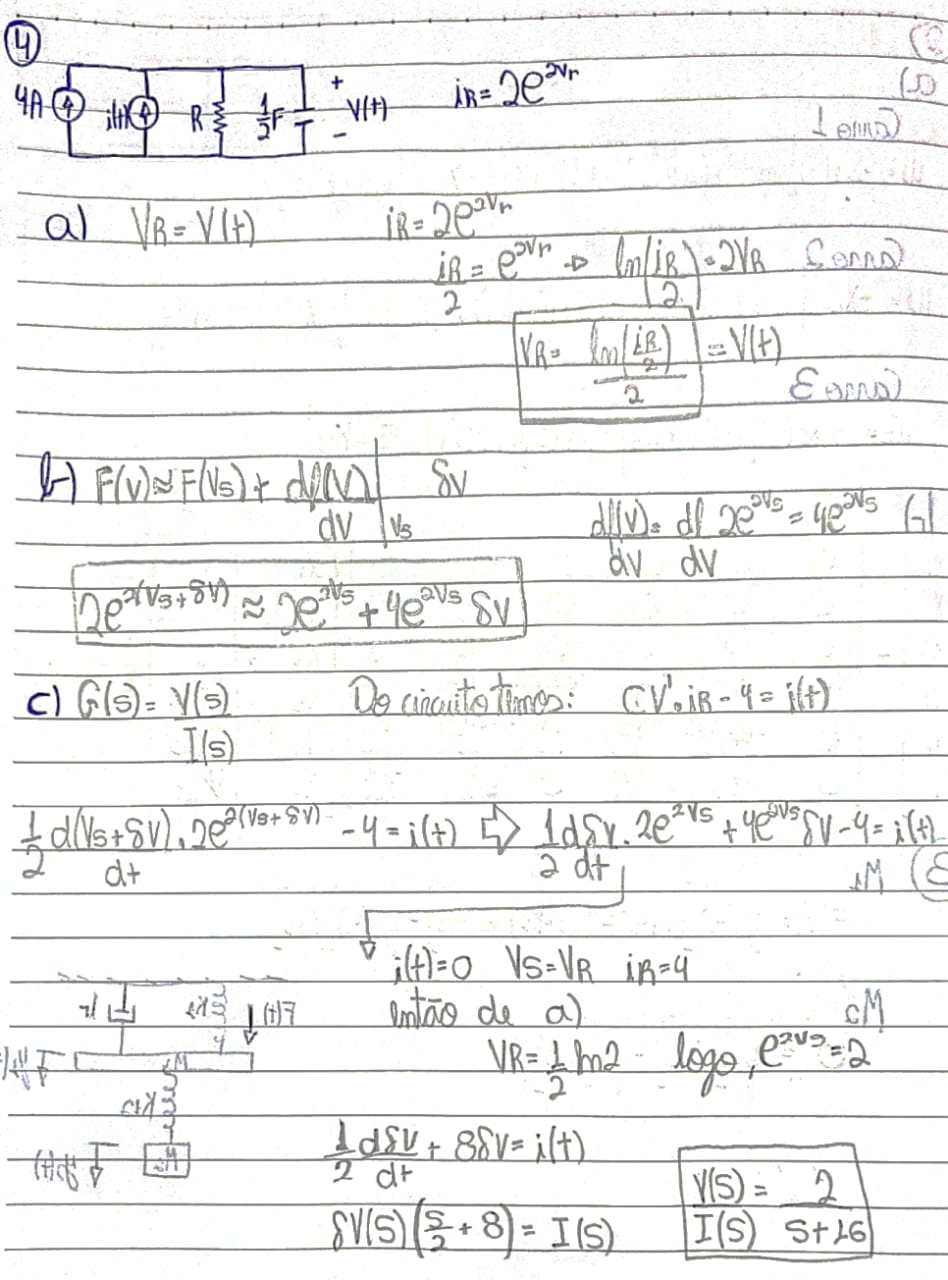 4
4A i(t) R 1/2F + V(t) - iR = 2e^2Vr
a) VR = V(t) iR = 2e^2Vr
iR/2 = e^2Vr → ln(iR/2) = 2VR
VR = ln(iR/2)/2 = V(t)
b) F(V) ≈ F(Vs) + df(V)/dV |Vs δV
df(V)/dV = df/dV 2e^2Vs = 4e^2Vs
2e^2(Vs + δV) ≈ 2e^2Vs + 4e^2Vs δV
c) G(s) = V(s)/I(s) Do circuito temos: CV' · iR - 4 = i(t)
1/2 d(Vs+δV)/dt . 2e^2(Vs+δV) - 4 = i(t) ⇒ 1/2 dδV/dt . 2e^2Vs + 4e^2Vs δV - 4 = i(t)
i(t) = 0 Vs = VR iR = 4
então de a)
VR = 1/2 ln2 logo, e^2Vs = 2
1/2 dδV/dt + 8δV = i(t)
δV(S)(S/2 + 8) = I(S)
V(S)/I(S) = 2/S+16